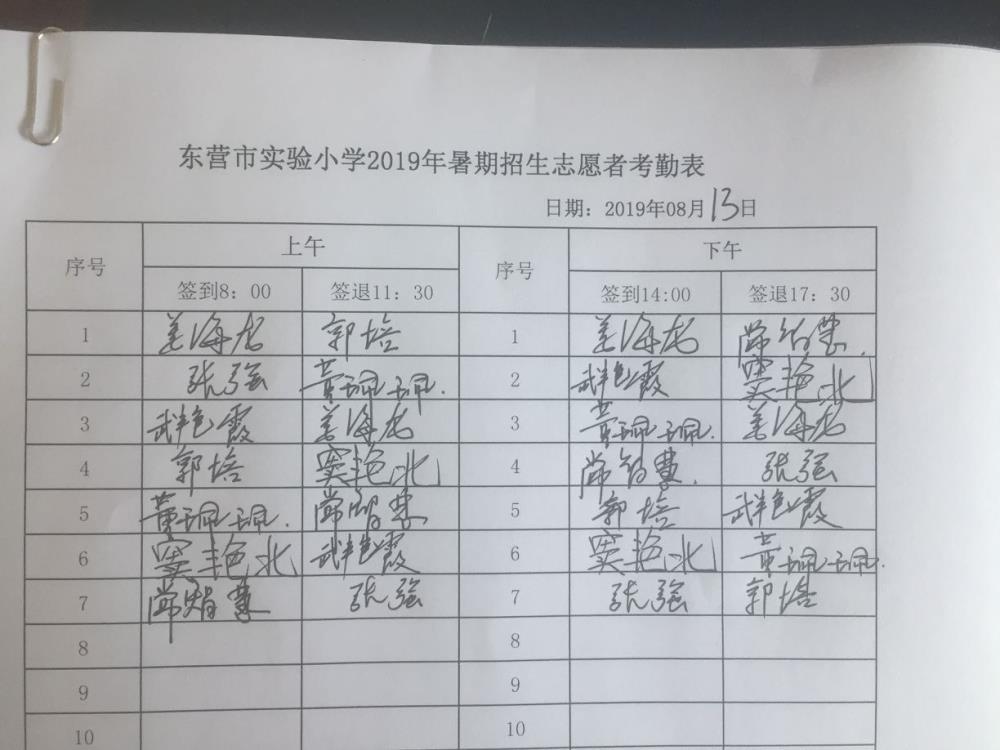 东营市实验小学2019年暑期招生志愿者考勤表
日期：2019年08月13日
序号 上午 序号 下午
签到8：00 签退11：30 签到14:00 签退17：30
1 姜海龙 郭培 1 姜海龙 常智慧
2 张强 黄珮珮 2 武艳霞 窦艳北
3 武艳霞 姜海龙 3 黄珮珮 姜海龙
4 郭培 窦艳北 4 常智慧 张强
5 黄珮珮 常智慧 5 郭培 武艳霞
6 窦艳北 武艳霞 6 窦艳北 黄珮珮
7 常智慧 张强 7 张强 郭培
8 8
9 9
10 10